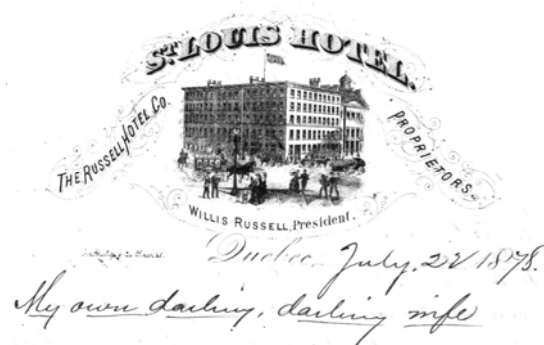 ST. LOUIS HOTEL.
THE RUSSELL HOTEL CO.
PROPRIETORS.
WILLIS RUSSELL, President.
Quebec, July, 22 1878.
My own darling, darling wife